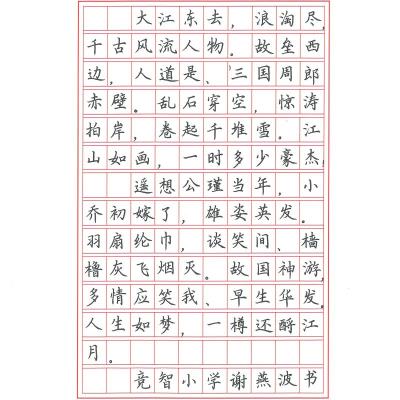 大江东去，浪淘尽，
千古风流人物。故垒西
边，人道是、三国周郎
赤壁。乱石穿空，惊涛
拍岸，卷起千堆雪。江
山如画，一时多少豪杰，
遥想公瑾当年，小
乔初嫁了，雄姿英发。
羽扇纶巾，谈笑间、樯
橹灰飞烟灭。故国神游，
多情应笑我、早生华发。
人生如梦，一樽还酹江
月。
竞智小学谢燕波书